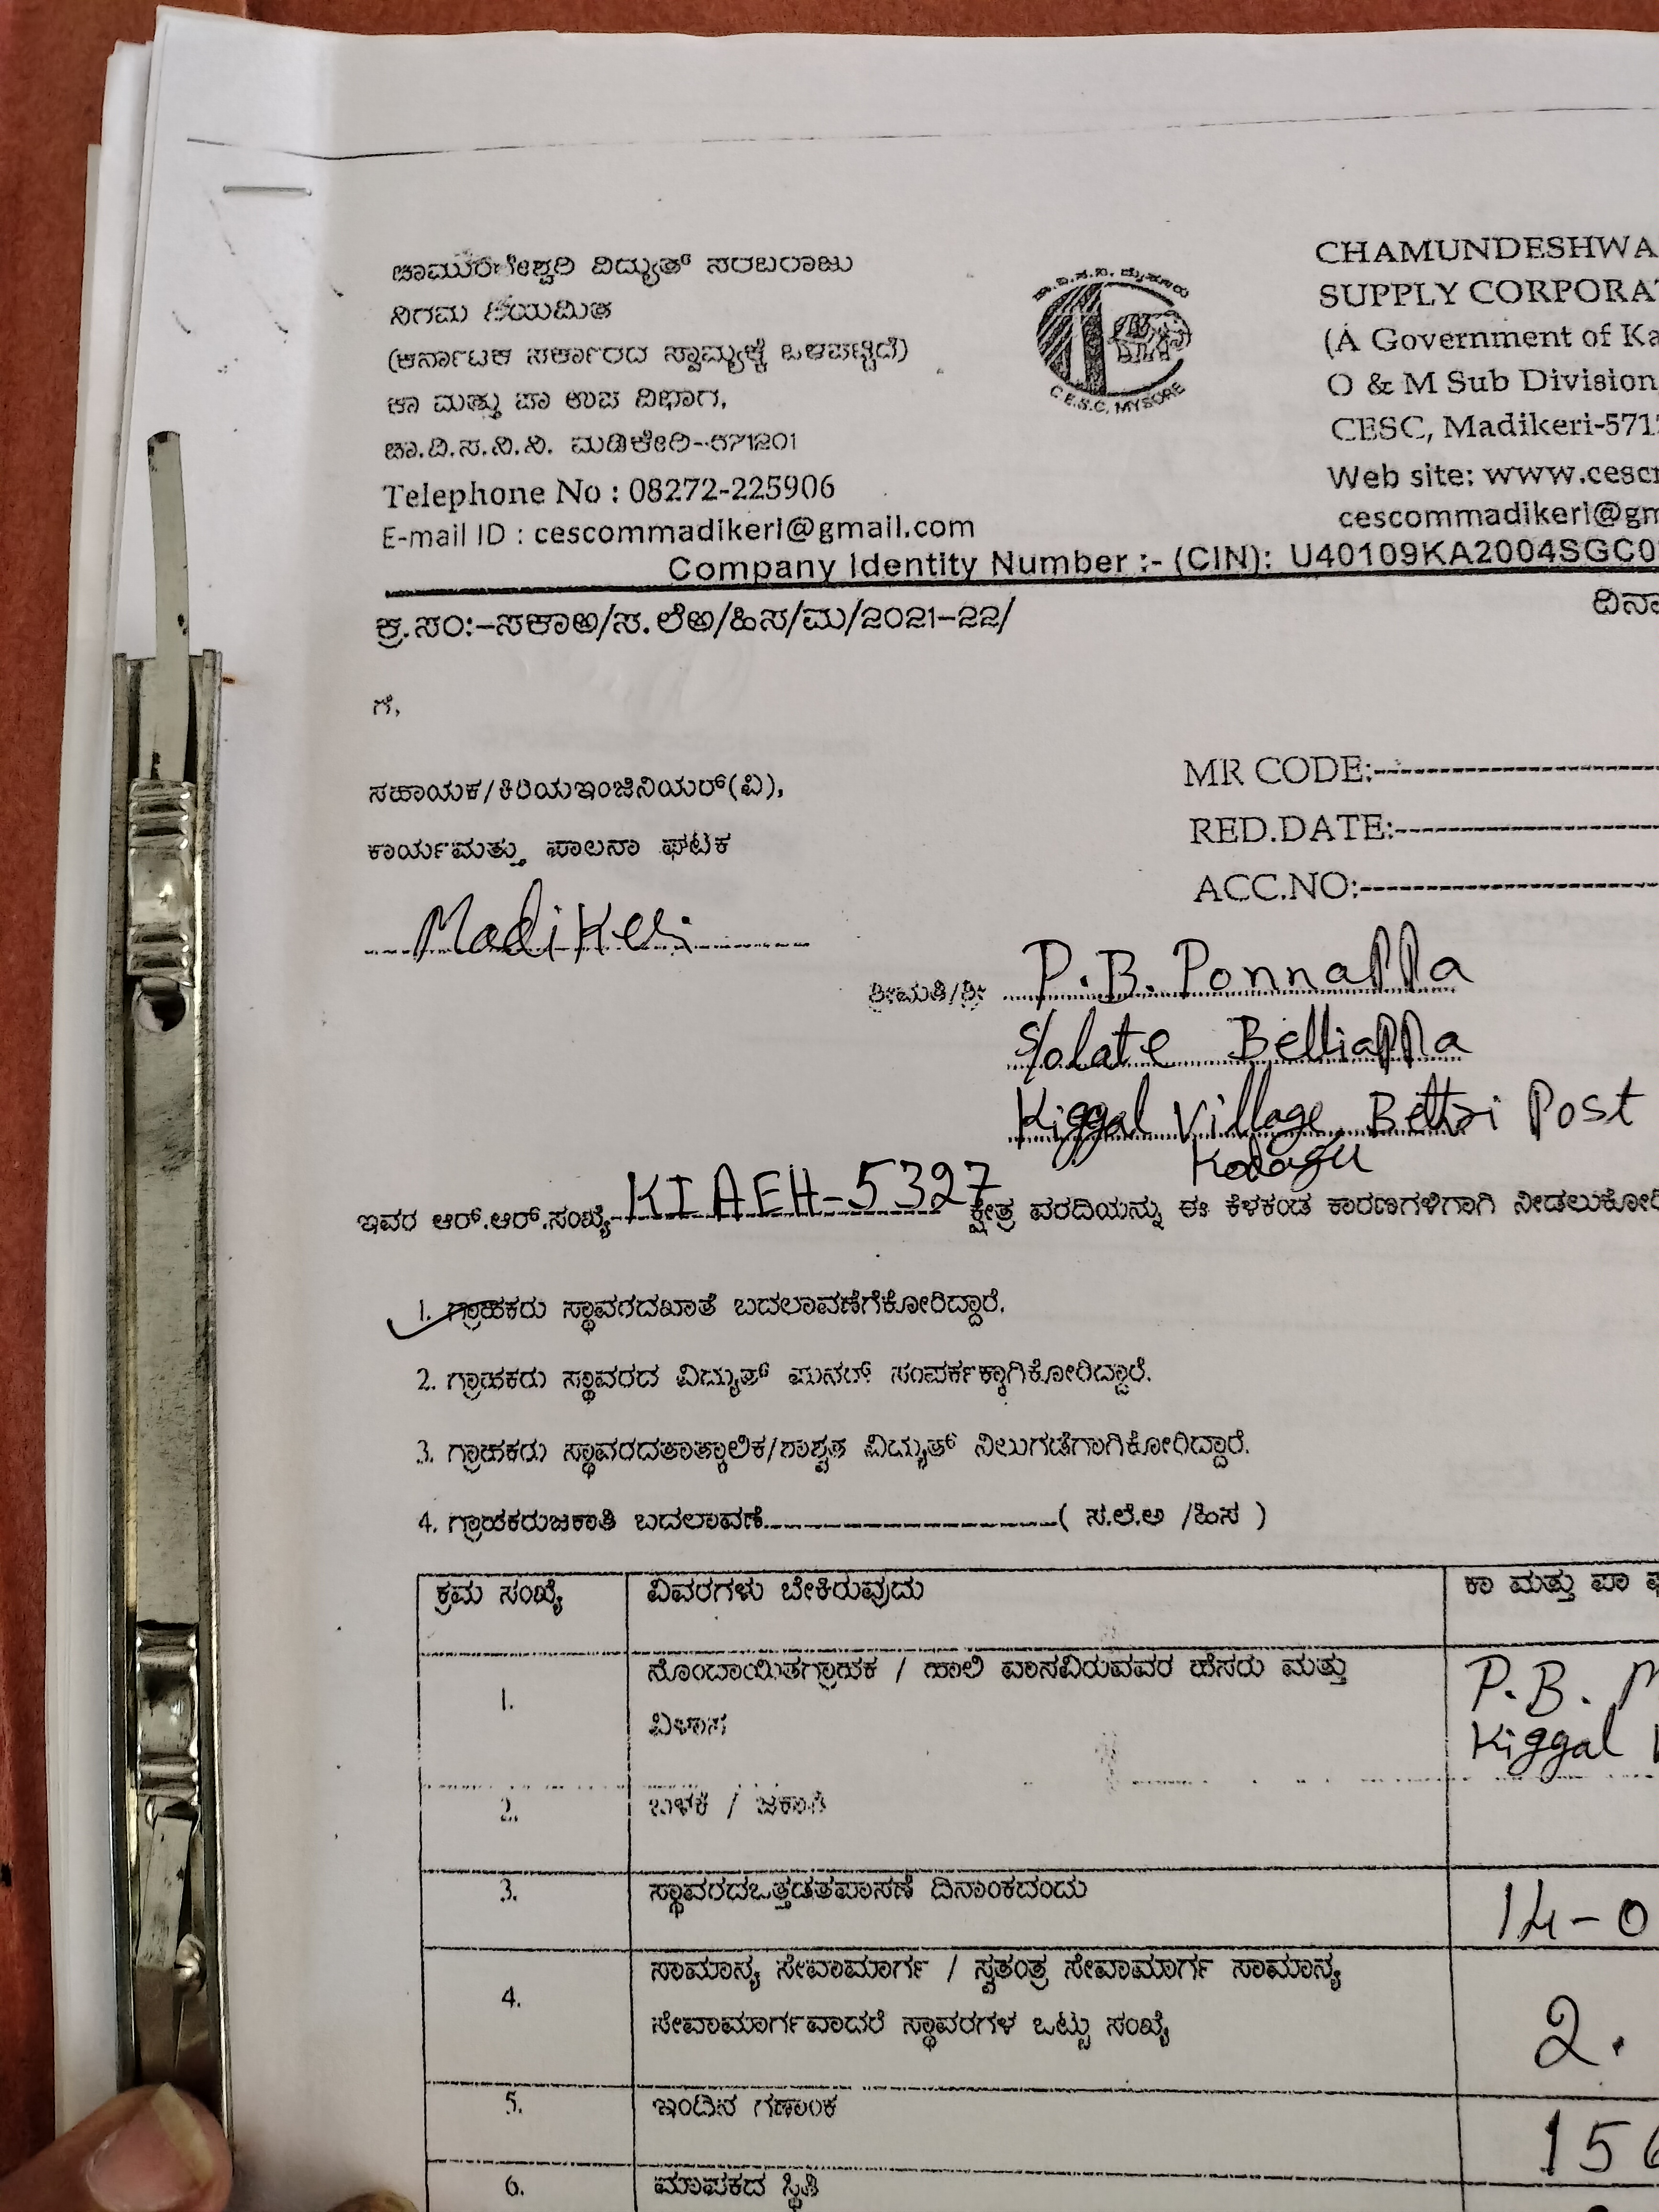 ಚಾಮುಂಡೇಶ್ವರಿ ವಿದ್ಯುತ್ ಸರಬರಾಜು
ನಿಗಮ ನಿಯಮಿತ
(ಕರ್ನಾಟಕ ಸರ್ಕಾರದ ಸ್ವಾಮ್ಯಕ್ಕೆ ಒಳಪಟ್ಟಿದೆ)
ಕಾ ಮತ್ತು ಪಾ ಉಪ ವಿಭಾಗ,
ಚಾ.ವಿ.ಸ.ನಿ.ನಿ. ಮಡಿಕೇರಿ-571201
Telephone No : 08272-225906
E-mail ID : cescommadikeri@gmail.com
ಚಾ.ವಿ.ಸ.ನಿ. ಮೈಸೂರು
C.E.S.C. MYSORE
CHAMUNDESHWA
SUPPLY CORPORA
(A Government of Ka
O & M Sub Division,
CESC, Madikeri-571
Web site: www.cesc
cescommadikeri@gm
Company Identity Number :- (CIN): U40109KA2004SGC0
ಕ್ರ.ಸಂ:-ಸಕಾಅ/ಸ.ಲೆಅ/ಹಿಸ/ಮ/2021-22/
ದಿನಾ
ಗೆ,
ಸಹಾಯಕ/ಕಿರಿಯಇಂಜಿನಿಯರ್(ವಿ),
ಕಾರ್ಯಮತ್ತು ಪಾಲನಾ ಘಟಕ
Madikeri
MR CODE:
RED.DATE:
ACC.NO:
ಶ್ರೀಮತಿ/ಶ್ರೀ P.B. Ponnappa
S/o late Belliappa
Kiggal Village Bettri Post
Kodagu
ಇವರ ಆರ್.ಆರ್.ಸಂಖ್ಯೆ KIAEH-5327 ಕ್ಷೇತ್ರ ವರದಿಯನ್ನು ಈ ಕೆಳಕಂಡ ಕಾರಣಗಳಿಗಾಗಿ ನೀಡಲುಕೋರಿ
1. ಗ್ರಾಹಕರು ಸ್ಥಾವರದಖಾತೆ ಬದಲಾವಣೆಗೆಕೋರಿದ್ದಾರೆ.
2. ಗ್ರಾಹಕರು ಸ್ಥಾವರದ ವಿದ್ಯುತ್ ಪುನರ್ ಸಂಪರ್ಕಕ್ಕಾಗಿಕೋರಿದ್ದಾರೆ.
3. ಗ್ರಾಹಕರು ಸ್ಥಾವರದತಾತ್ಕಾಲಿಕ/ಶಾಶ್ವತ ವಿದ್ಯುತ್ ನಿಲುಗಡೆಗಾಗಿಕೋರಿದ್ದಾರೆ.
4. ಗ್ರಾಹಕರುಜಕಾತಿ ಬದಲಾವಣೆ ( ಸ.ಲೆ.ಅ /ಹಿಸ )
ಕ್ರಮ ಸಂಖ್ಯೆ ವಿವರಗಳು ಬೇಕಿರುವುದು ಕಾ ಮತ್ತು ಪಾ ಘ
1. ನೊಂದಾಯಿತಗ್ರಾಹಕ / ಹಾಲಿ ವಾಸವಿರುವವರ ಹೆಸರು ಮತ್ತು
ವಿಳಾಸ
P.B.
Kiggal
2. ಬಳಕೆ / ಜಕಾತಿ
3. ಸ್ಥಾವರದಒತ್ತಡತಪಾಸಣೆ ದಿನಾಂಕದಂದು 14-0
4. ಸಾಮಾನ್ಯ ಸೇವಾಮಾರ್ಗ / ಸ್ವತಂತ್ರ ಸೇವಾಮಾರ್ಗ ಸಾಮಾನ್ಯ
ಸೇವಾಮಾರ್ಗವಾದರೆ ಸ್ಥಾವರಗಳ ಒಟ್ಟು ಸಂಖ್ಯೆ 2.
5. ಇಂದಿನ ಗಣಾಂಕ 156
6. ಮಾಪಕದ ಸ್ಥಿತಿ